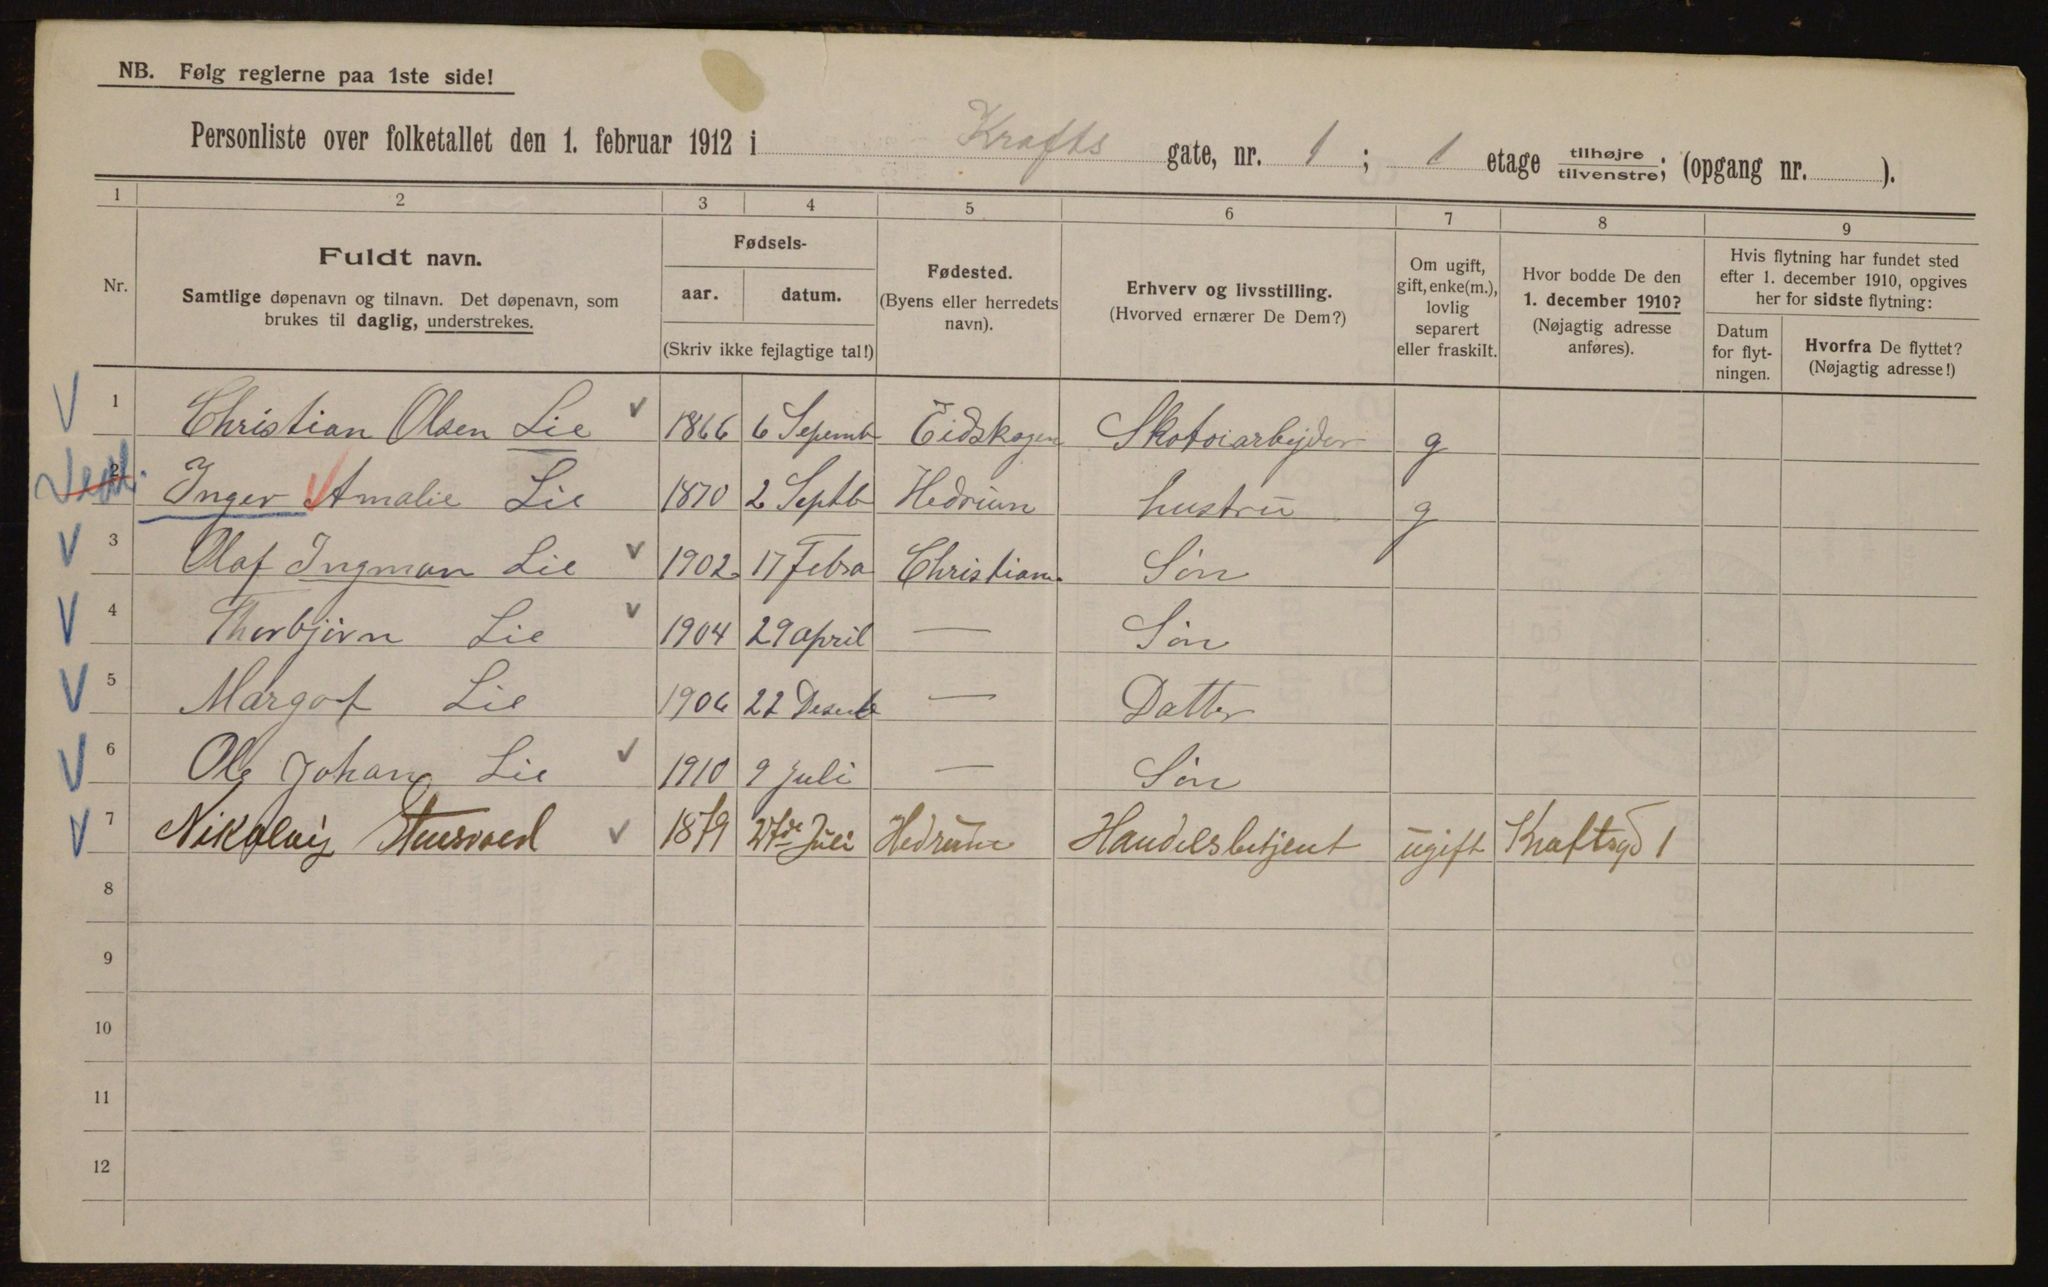 NB. Følg reglerne paa 1ste side!
Personliste over folketallet den 1. februar 1912 i Krafts gate, nr. 1 ; 1 etage tilhøjre tilvenstre; (opgang nr. ).
1 2 3 4 5 6 7 8 9
Nr.
Fuldt navn.
Samtlige døpenavn og tilnavn. Det døpenavn, som
brukes til daglig, understrekes.
Fødsels-
aar. datum.
(Skriv ikke fejlagtige tal!)
Fødested.
(Byens eller herredets
navn).
Erhverv og livsstilling.
(Hvorved ernærer De Dem?)
Om ugift,
gift, enke(m.),
lovlig
separert
eller fraskilt.
Hvor bodde De den
1. december 1910?
(Nøjagtig adresse
anføres).
Hvis flytning har fundet sted
efter 1. december 1910, opgives
her for sidste flytning:
Datum
for flyt-
ningen.
Hvorfra De flyttet?
(Nøjagtig adresse!)
1 Christian Olsen Lie 1866 6 Sepemb Eidskogen Skotøiarbejder g
2 Inger Amalie Lie 1870 2 Septb Hedrum hustru g
3 Olaf Ingman Lie 1902 17 Febra Christian. Søn
4 Thorbjørn Lie 1904 29 april — Søn
5 Margot Lie 1906 22 Desemb — Datter
6 Ole Johan Lie 1910 9 Juli — Søn
7 Nikolaij 1879 27de Juli Hedrum Handelsbetjent ugift Kraftsgd 1
8
9
10
11
12